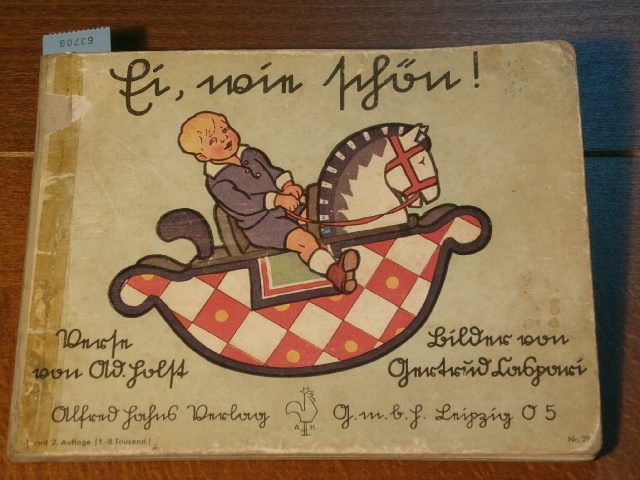 63708
Ei, wie schön!
Verse
von Ad. Holst
Bilder von
Gertrud Caspari
Alfred Hahns Verlag
A H
G.m.b.H. Leipzig O 5
und 2. Auflage (1.-8. Tausend.)
Nr.